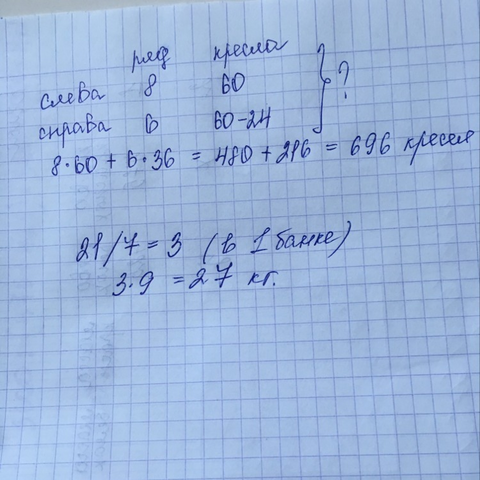 ряд кресла
слева 8 60
справа 6 60-24 } ?
8·60 + 6·36 = 480 + 216 = 696 кресел
21/7 = 3 (в 1 банке)
3·9 = 27 кг.